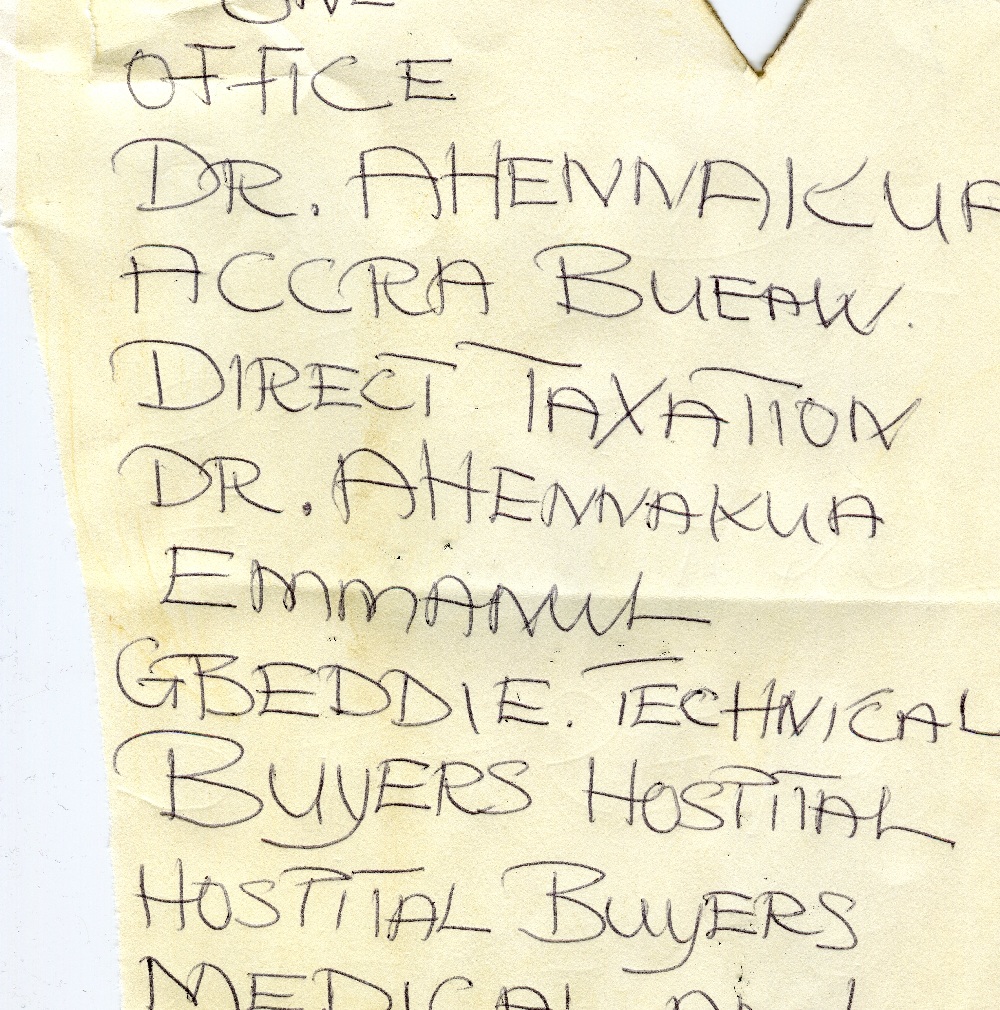 OFFICE
DR. AHENNAKUA
ACCRA BUEAW.
DIRECT TAXATION
DR. AHENNAKUA
EMMANUL
GBEDDIE. TECHNICAL
BUYERS HOSTITAL
HOSTITAL BUYERS
MEDICAL